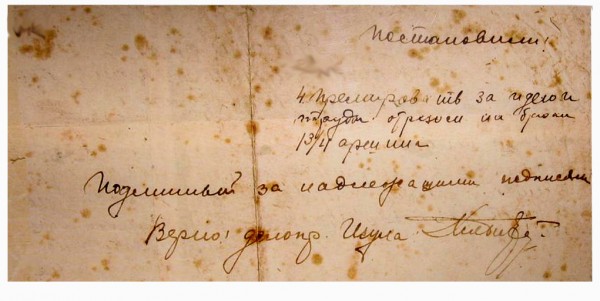 Постановили:
4. Премировать за идею и
труды отрезом на брюки
1 3/4 аршина
Подлинный за надлежащими подписями
Верно: делопр.